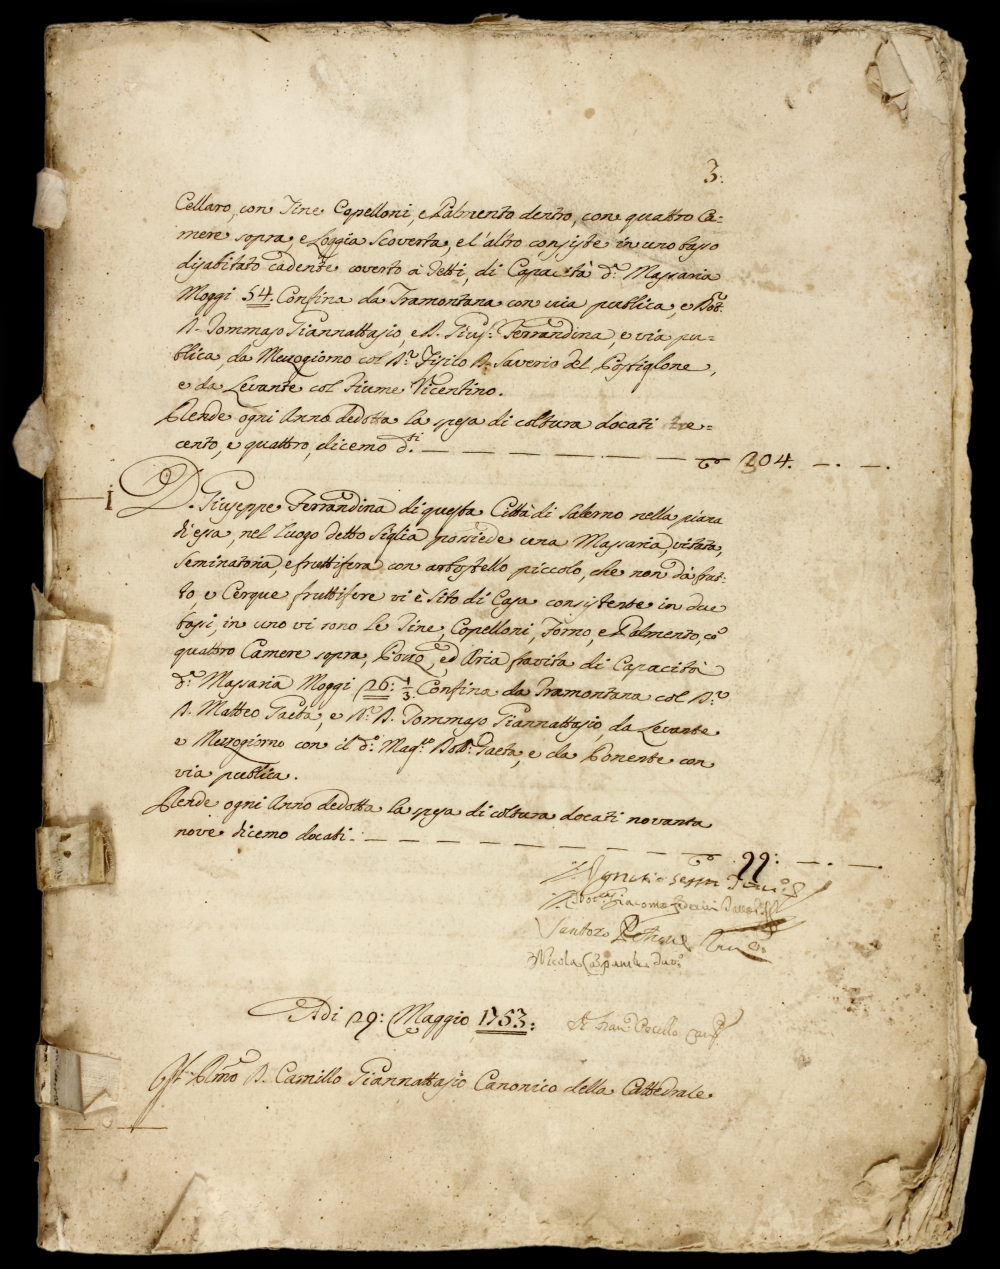 3.
Cellaro, con Tine Copelloni, e Palmento dentro, con quattro Ca=
mere sopra, e Loggia Scoverta, e l'altro consiste in uno basso
disabitato cadente coverto à Tetti, di Capacità d.ª Massaria
Moggi 54. Confina da Tramontana con via publica, e Dot.
D. Tommaso Giannattasio, e D. Gius.e Ferrandina, e via pu=
blica, da Mezzogiorno col D.r Fisico D. Saverio del Postiglone,
e da Levante col Fiume Vicentino.
Rende ogni Anno dedotta la spesa di coltura docati tre=
cento, e quattro, dicemo d.ti — — — — — — 304. — . — .
1 D. Giuseppe Ferrandina di questa Città di Salerno nella piana
d'essa, nel luogo detto Siglia possiede una Massaria, vitata,
Seminatoria, e fruttifera con arbostello piccolo, che non dà frut=
to, e Cerque fruttifere vi è Sito di Casa consistente in due
bassi, in uno vi sono le Tine, Copelloni, Forno, e Palmento, co
quattro Camere sopra, Pozzo, ed Aria fravita di Capacità
d.ª Massaria Moggi 26: 1/3. Confina da Tramontana col D.r
D. Matteo Gaeta, e D.r D. Tommaso Giannattasio, da Levante
e Mezzogiorno con il d.o Mag.co Dott.r Gaeta, e da Ponente con
via publica.
Rende ogni Anno dedotta la spesa di coltura docati novanta
nove dicemo docati — — — — — — 99: — . —
Giacomo
Santoro
Nicola
Adi 29: Maggio 1753:
D. Camillo Giannattasio Canonico della Cattedrale